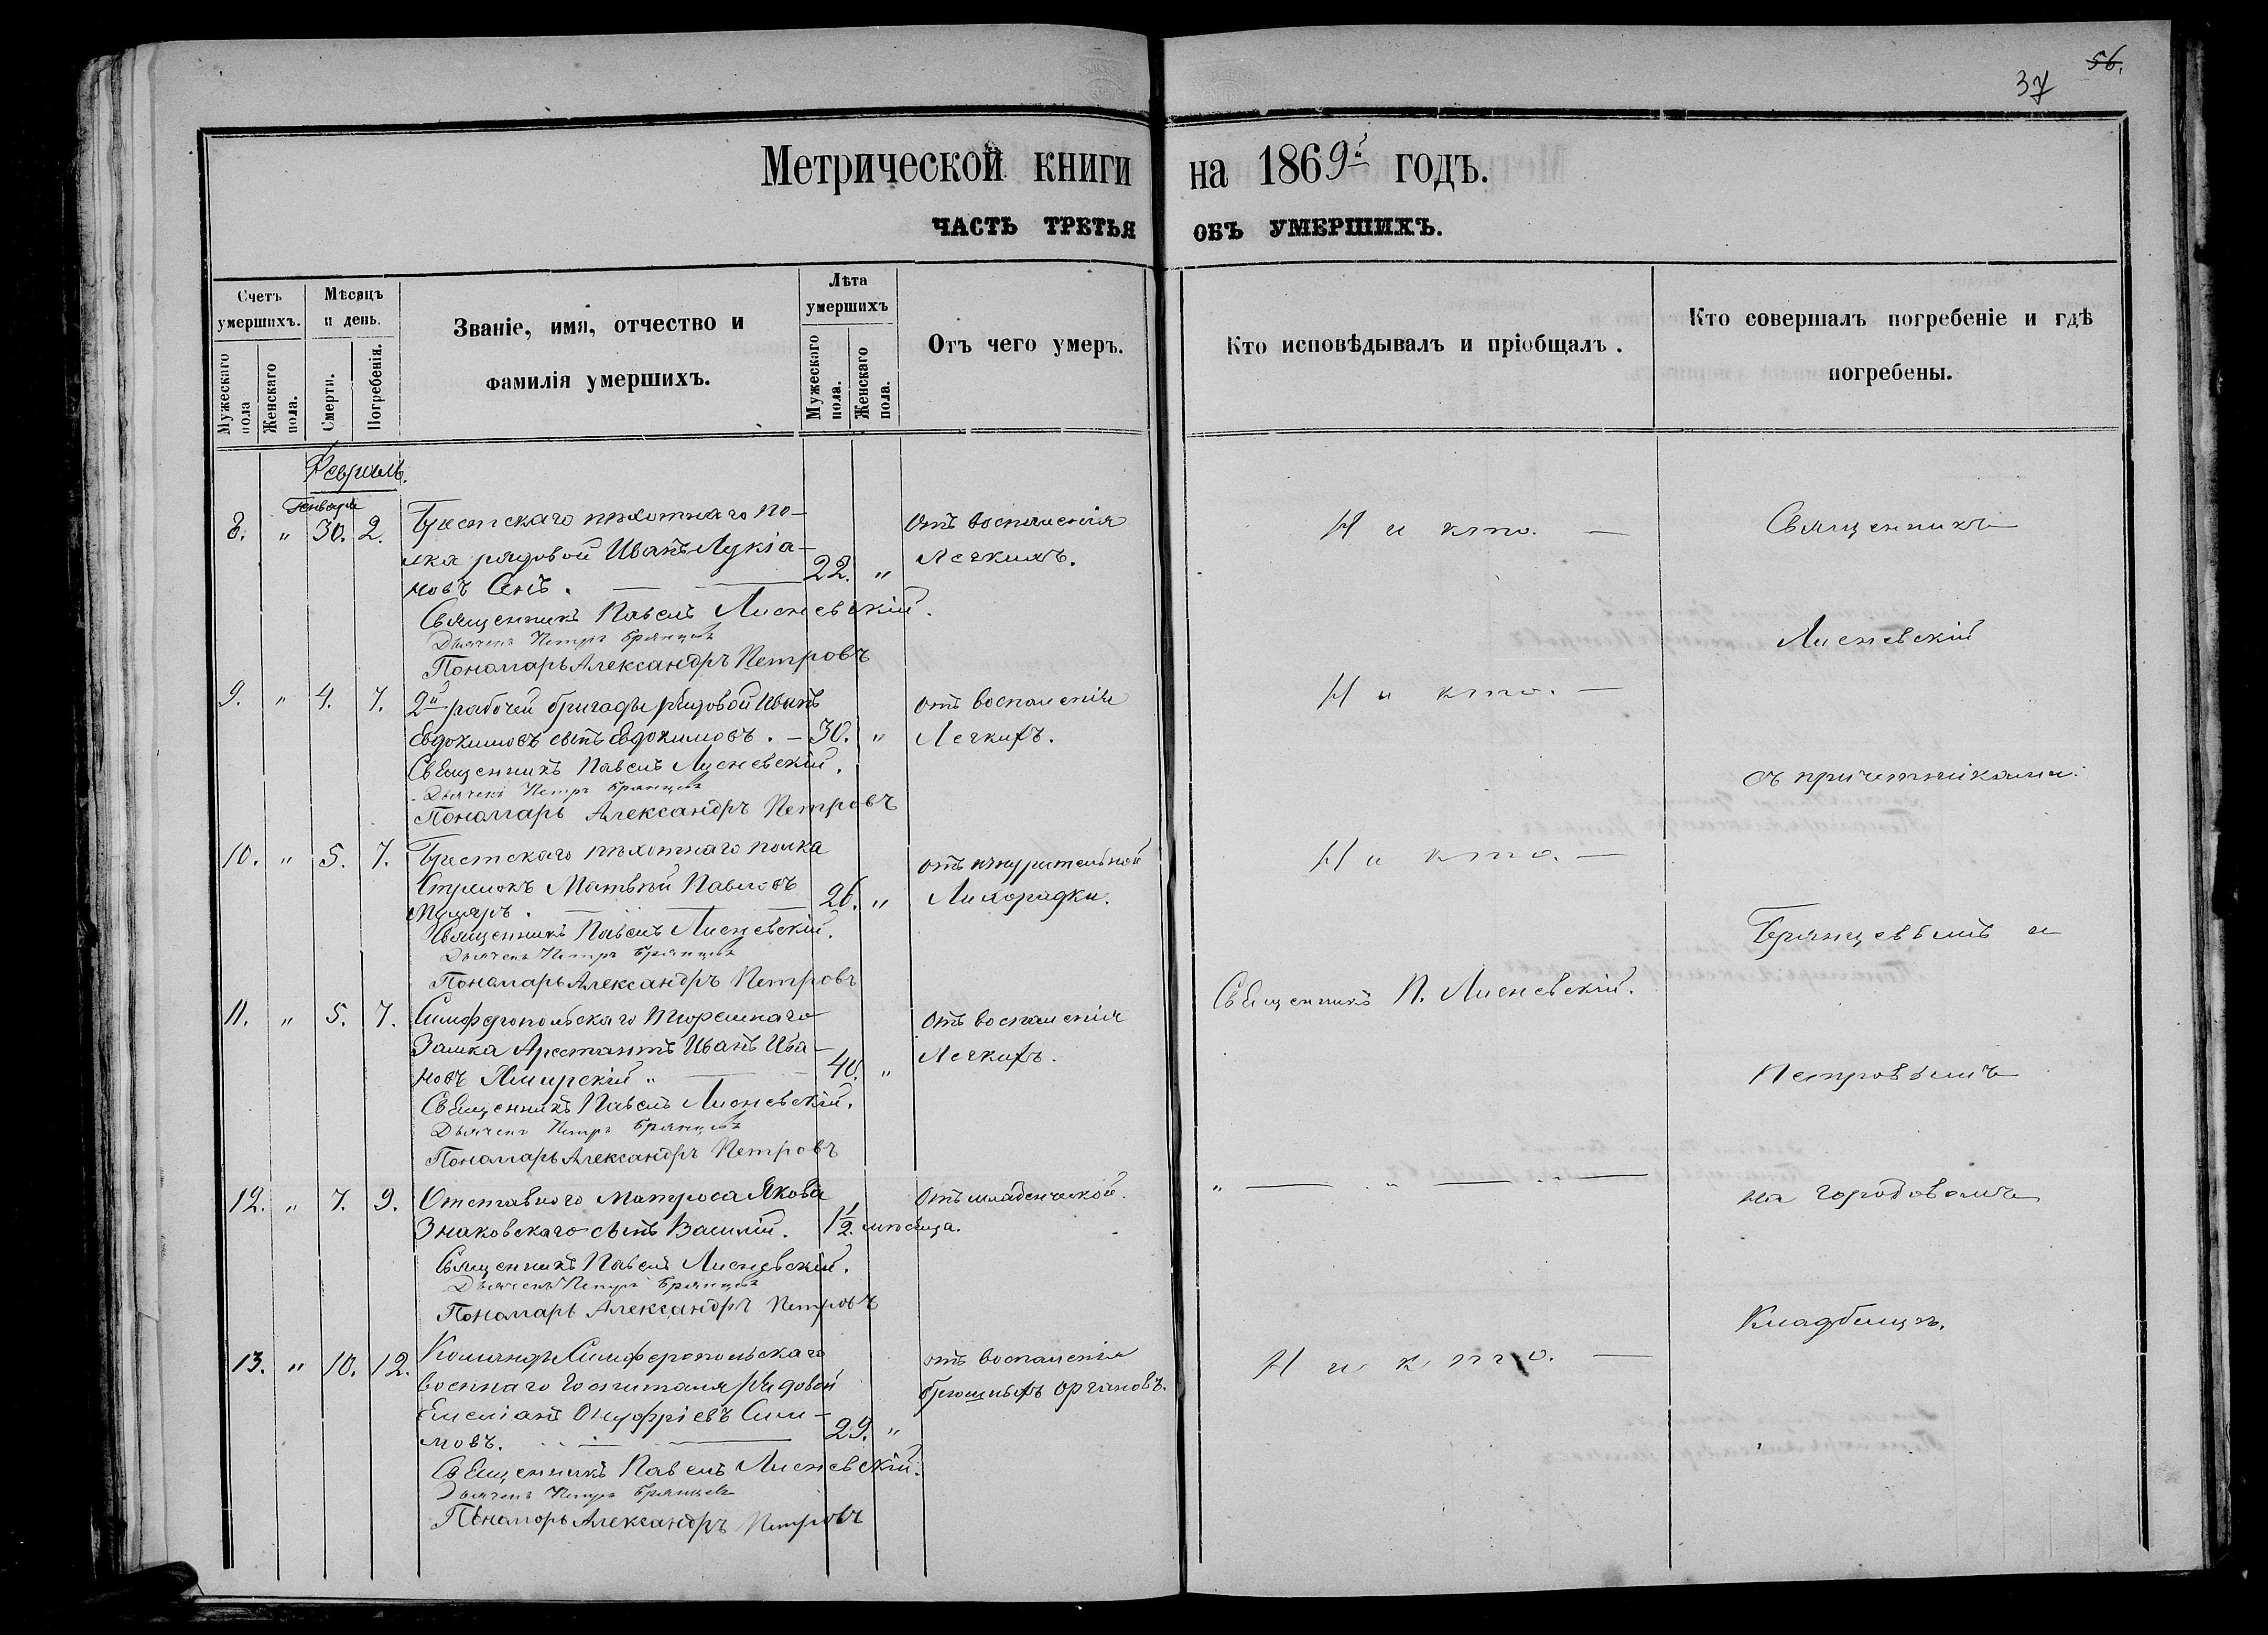 56.
37
Метрической книги на 1869й годъ.
ЧАСТЬ ТРЕТЬЯ ОБЪ УМЕРШИХЪ.
Счетъ умершихъ.
Мужескаго пола
Женскаго пола.
Мѣсяцъ и день.
Смерти.
Погребенія.
Званіе, имя, отчество и
фамилія умершихъ.
Лѣта умершихъ
Мужескаго пола.
Женскаго пола.
Отъ чего умеръ.
Кто исповѣдывалъ и пріобщалъ.
Кто совершалъ погребеніе и гдѣ
погребены.
Февраль.
Генваря
8. " 30. 2. Брестскаго пѣхотнаго по-
лка рядовой Иванъ Лукіа-
новъ Сенъ. 22. "
отъ воспаленія
Легкихъ.
Ни кто.
Священникъ Павелъ Лисневскій.
Дьячекъ Петръ Брянцевъ
Пономарь Александръ Петровъ
9. " 4. 7. 2й рабочей бригады рядовой Иванъ
Евдокимовъ сынъ Евдокимовъ. 30. "
отъ воспаленія
Легкихъ.
Ни кто.
Священникъ Павелъ Лисневскій.
Дьячекъ Петръ Брянцевъ
Пономарь Александръ Петровъ
10. " 5. 7. Брестскаго пѣхотнаго полка
Стрелокъ Матвѣй Павловъ
26. "
отъ изнурительной
Лихорадки.
Ни кто.
Священникъ Павелъ Лисневскій.
Дьячекъ Петръ Брянцевъ
Пономарь Александръ Петровъ
11. " 5. 7. Симферопольскаго Тюремнаго
Замка Арестантъ Иванъ Ива-
новъ 40. "
отъ воспаленія
Легкихъ.
Священникъ П. Лисневскій.
Священникъ Павелъ Лисневскій.
Дьячекъ Петръ Брянцевъ
Пономарь Александръ Петровъ
12. " 7. 9. Отставного Матроса Якова
Знаковскаго сынъ Василій. 1 1/2. мѣсяца.
Отъ младенческой.
Священникъ Павелъ Лисневскій.
Дьячекъ Петръ Брянцевъ
Пономарь Александръ Петровъ
13. " 10. 12. Команды Симферопольскаго
военнаго Госпиталя Рядовой
Емеліанъ Онуфріевъ Сим-
мовъ. 29. "
отъ воспаленія
брюшныхъ органовъ.
Ни кто.
Священникъ Павелъ Лисневскій.
Дьячекъ Петръ Брянцевъ
Пономарь Александръ Петровъ
Священникъ
Лисневскій
съ причетниками:
Брянцевымъ и
Петровымъ
на городовомъ
Кладбищѣ.